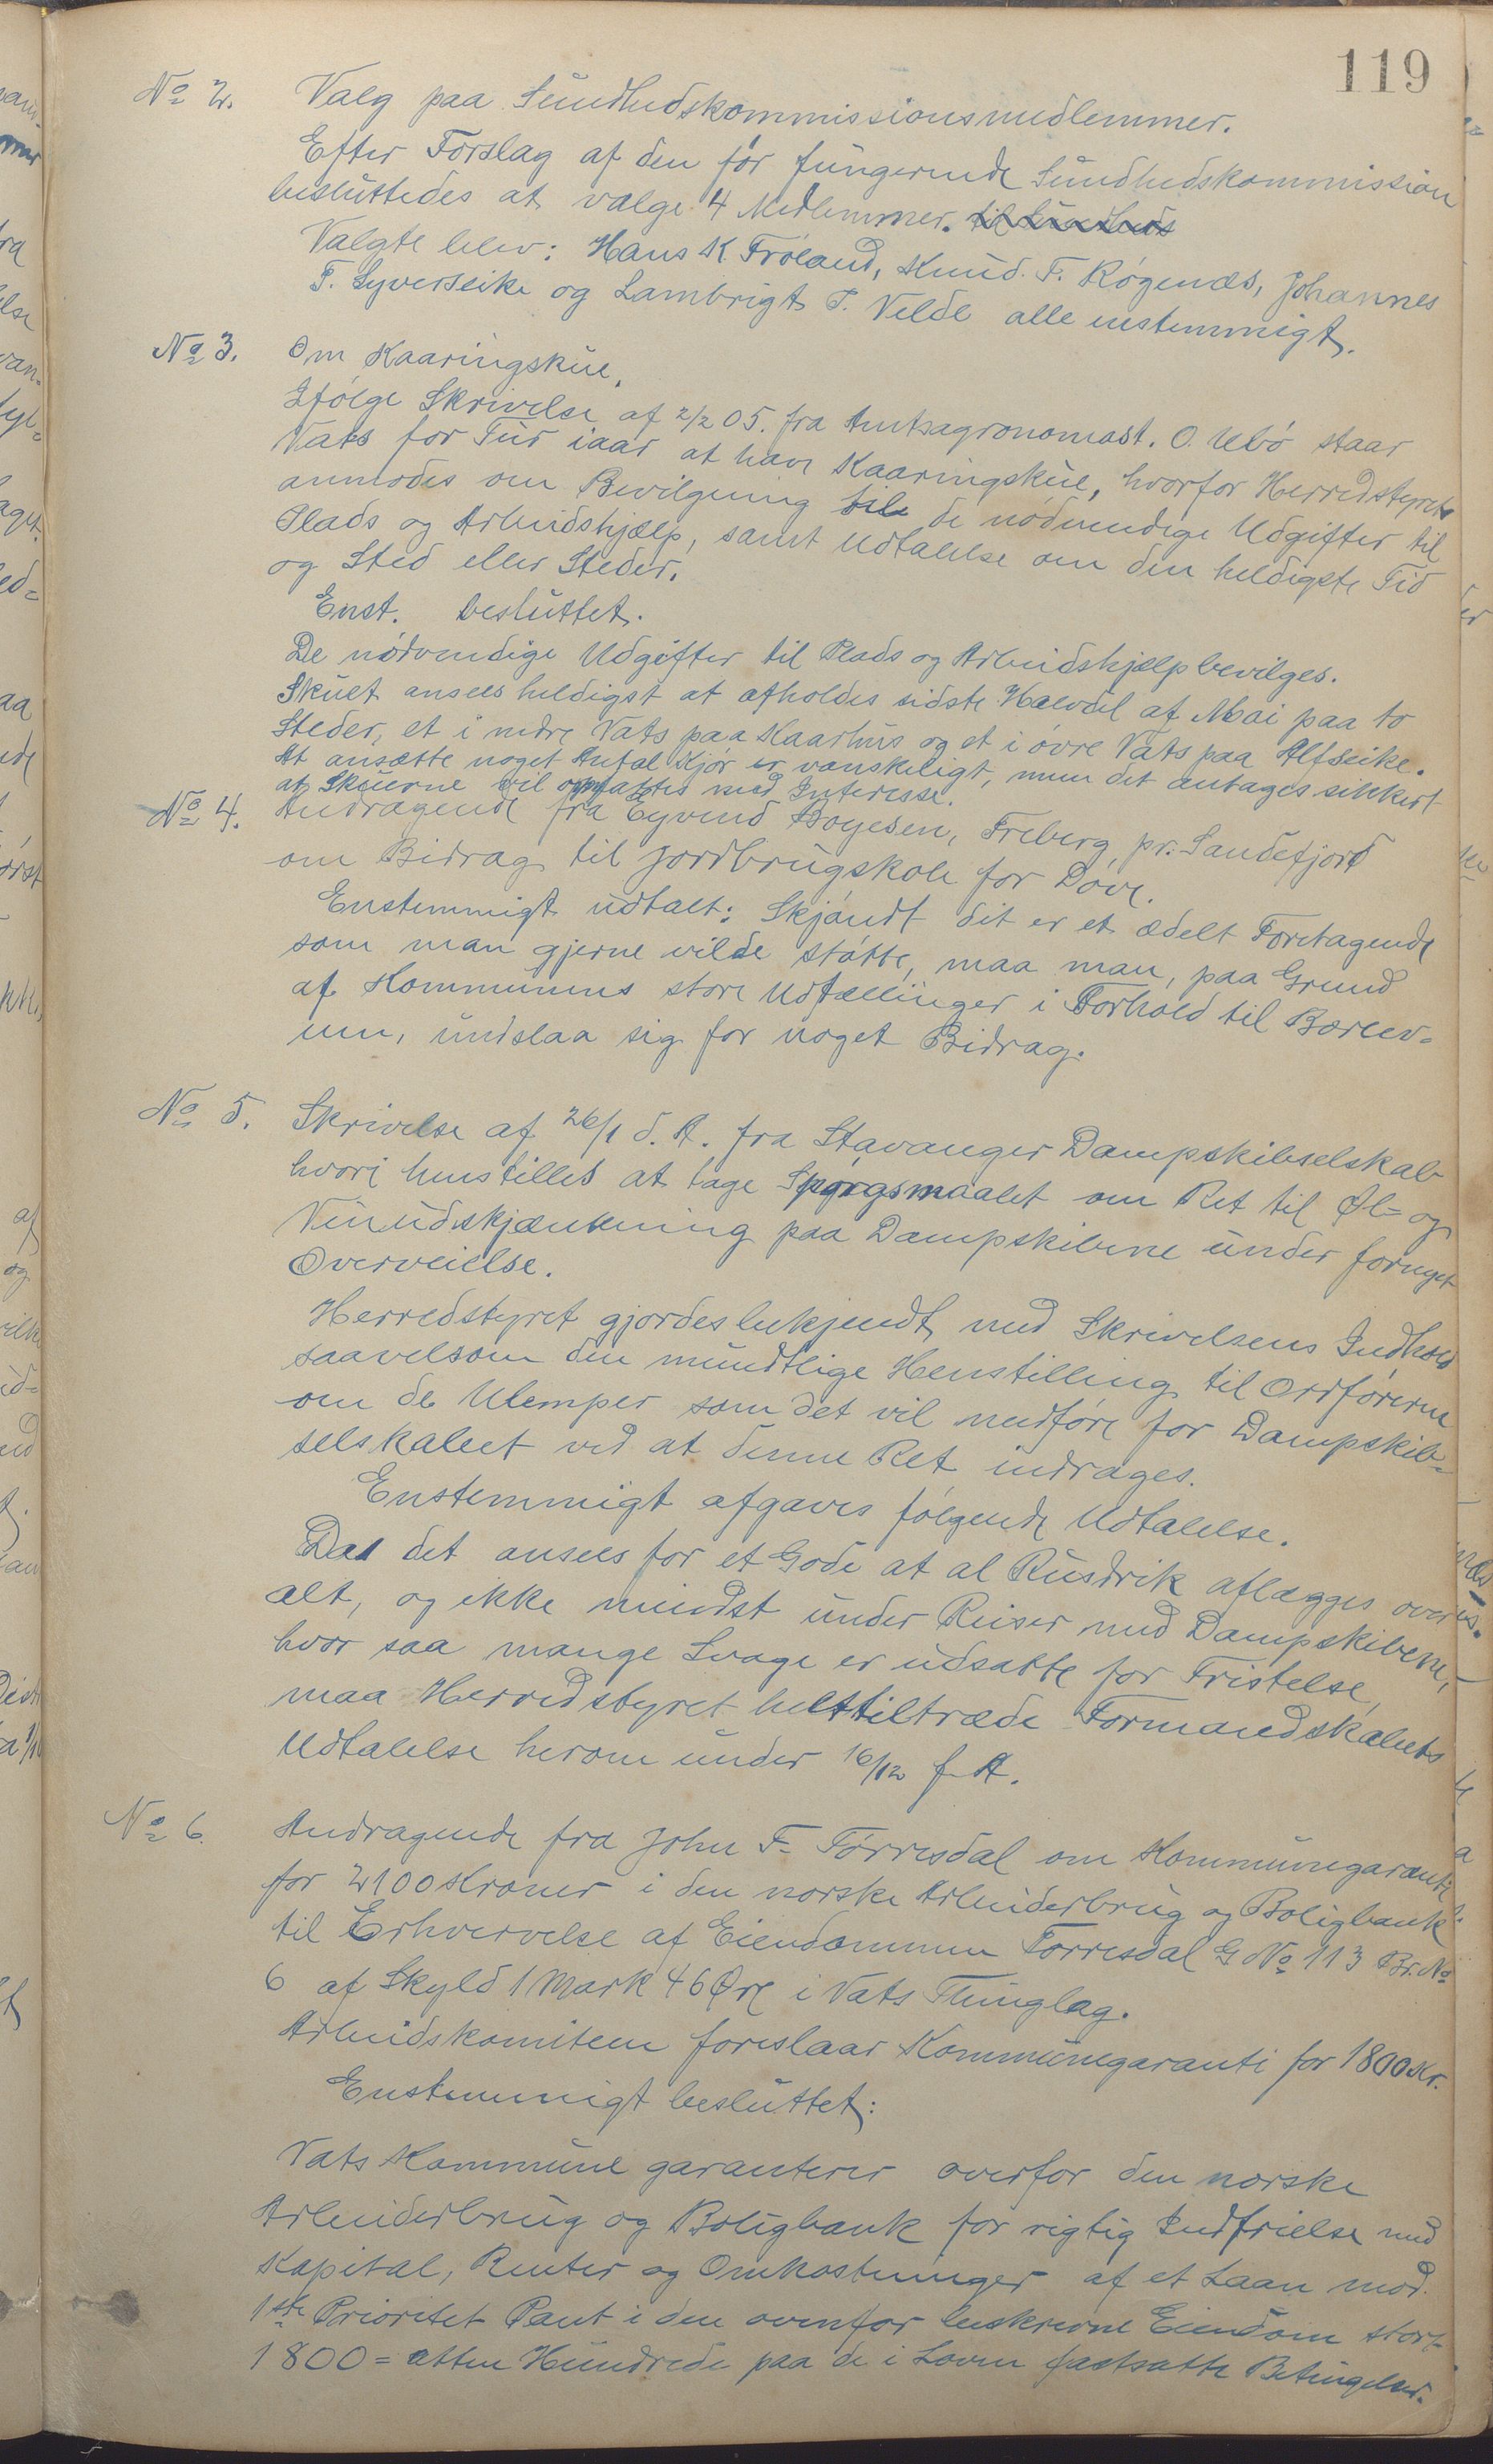 119
No 2. Valg paa Sundhedskommissionsmedlemmer.
Efter Forslag af den før fungerende Sundhedskommission
besluttedes at vælge 4 Medlemmer. til Sundheds
Valgte blev: Hans K Frøland, Knud. F. Røgenæs, Johannes
T. Syverseike og Lambrigt T. Velde alle enstemmigt.
No 3. Om Kaaringskue.
Ifølge Skrivelse af 2/2 05. fra Amtsagronomast. O. Ubø staar
Vats for Tur iaar at have Kaaringskue, hvorfor Herredstyret
anmodes om Bevilgning til de nødvendige Udgifter til
Plads og Arbeidshjælp, samt Udtalelse om den heldigste Tid
og Sted eller Steder.
Enst. besluttet.
De nødvendige Udgifter til Plads og Arbeidshjælp bevilges.
Skuet ansees heldigst at afholdes sidste Halvdel af Mai paa to
Steder, et i nedre Vats paa Kaarhus og et i øvre Vats paa Alfseike.
At ansætte noget Antal Kjør er vanskeligt, men det antages sikkert
at Skuerne vil omfattes med Interesse.
No 4. Andragende fra Eyvind Boyesen, Freberg, pr. Sandefjord
om Bidrag til Jordbrugskole for Døve.
Enstemmigt udtalt: Skjøndt dit er et ædelt Foretagende
som man gjerne vilde støtte, maa man, paa Grund
af Kommunens store Udtællinger i Forhold til Bæreev-
nen, undslaa sig for noget Bidrag.
No 5. Skrivelse af 26/1 d. A. fra Stavanger Dampskibselskab
hvori henstilles at tage Spørgsmaalet om Ret til Øl- og
Vinudskjænkning paa Dampskibene under fornyet
Overveielse.
Herredstyret gjordes bekjendt med Skrivelsens Indhold
saavelsom den mundtlige Henstilling til Ordføreren
om de Ulemper som det vil medføre for Dampskib-
selskabet ved at denne Ret inddrages.
Enstemmigt afgaves følgende Udtalelse.
Da det ansees for et Gode at al Rusdrik aflægges over
alt, og ikke mindst under Reiser med Dampskibene,
hvor saa mange Svage er udsatte for Fristelse,
maa Herredstyret helt tiltræde Formandskabets
Udtalelse herom under 16/12 f. A.
No 6. Andragende fra John F. Tørresdal om Kommunegaranti
for 2100 Kroner i den norske Arbeiderbrug og Boligbank
til Erhvervelse af Eiendommen Tørresdal G No 113 Br. No
6 af Skyld 1 Mark 46 Øre i Vats Thinglag.
Arbeidskomiteen foreslaar Kommunegaranti for 1800 Kr.
Enstemmigt besluttet:
Vats Kommune garanterer overfor den norske
Arbeiderbrug og Boligbank for rigtig Indfrielse med
Kapital, Renter og Omkostninger af et Laan mod
1ste Prioritet Pant i den ovenfor beskrevne Eiendom stort
1800 = atten Hundrede paa de i Loven fastsatte Betingelser.